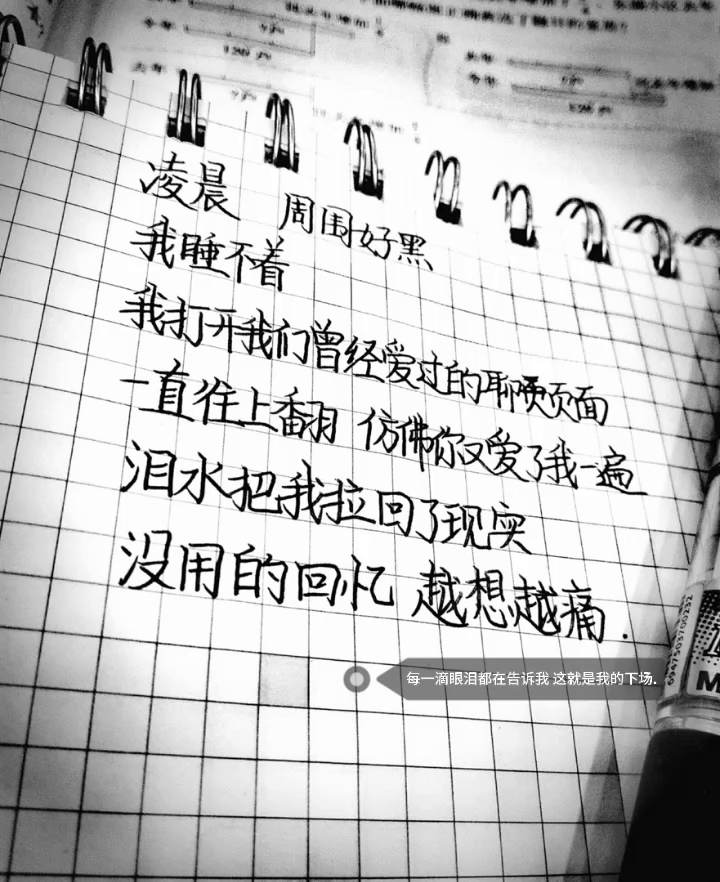 去年
今年
去年
凌晨 周围好黑
我睡不着
我打开我们曾经爱过的聊天页面
一直往上翻 仿佛你又爱了我一遍
泪水把我拉回了现实
没用的回忆 越想越痛.
每一滴眼泪都在告诉我 这就是我的下场.
6947503700232
M